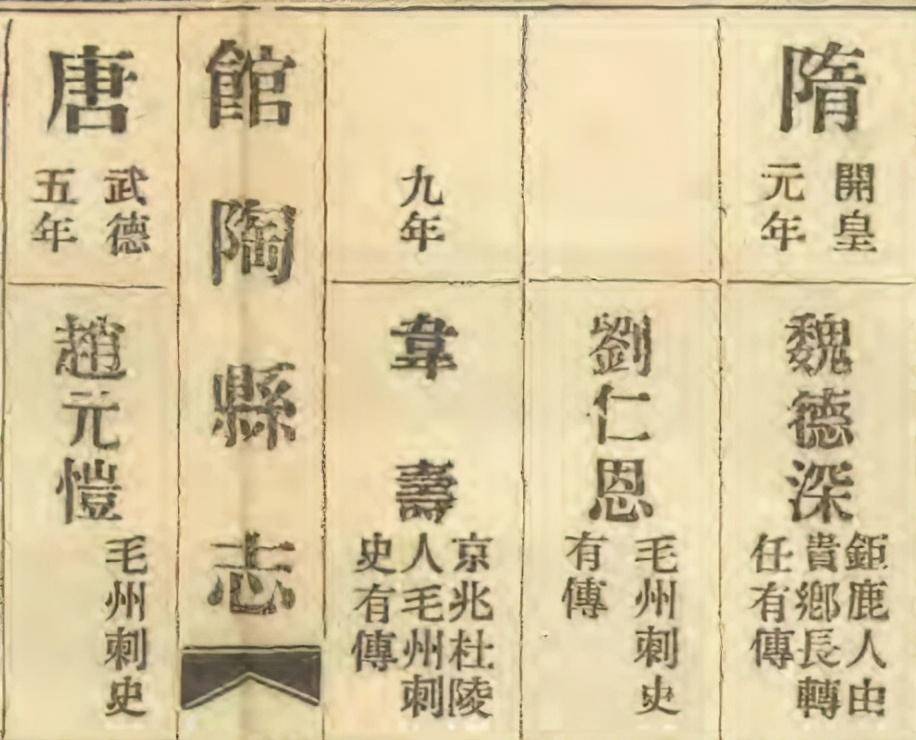 隋
開皇
元年
魏德深
鉅鹿人由
貴鄉長轉
任有傳
劉仁恩
毛州刺史
有傳
九年
韋壽
京兆杜陵
人毛州刺
史有傳
館陶縣志
唐
武德
五年
趙元愷
毛州刺史